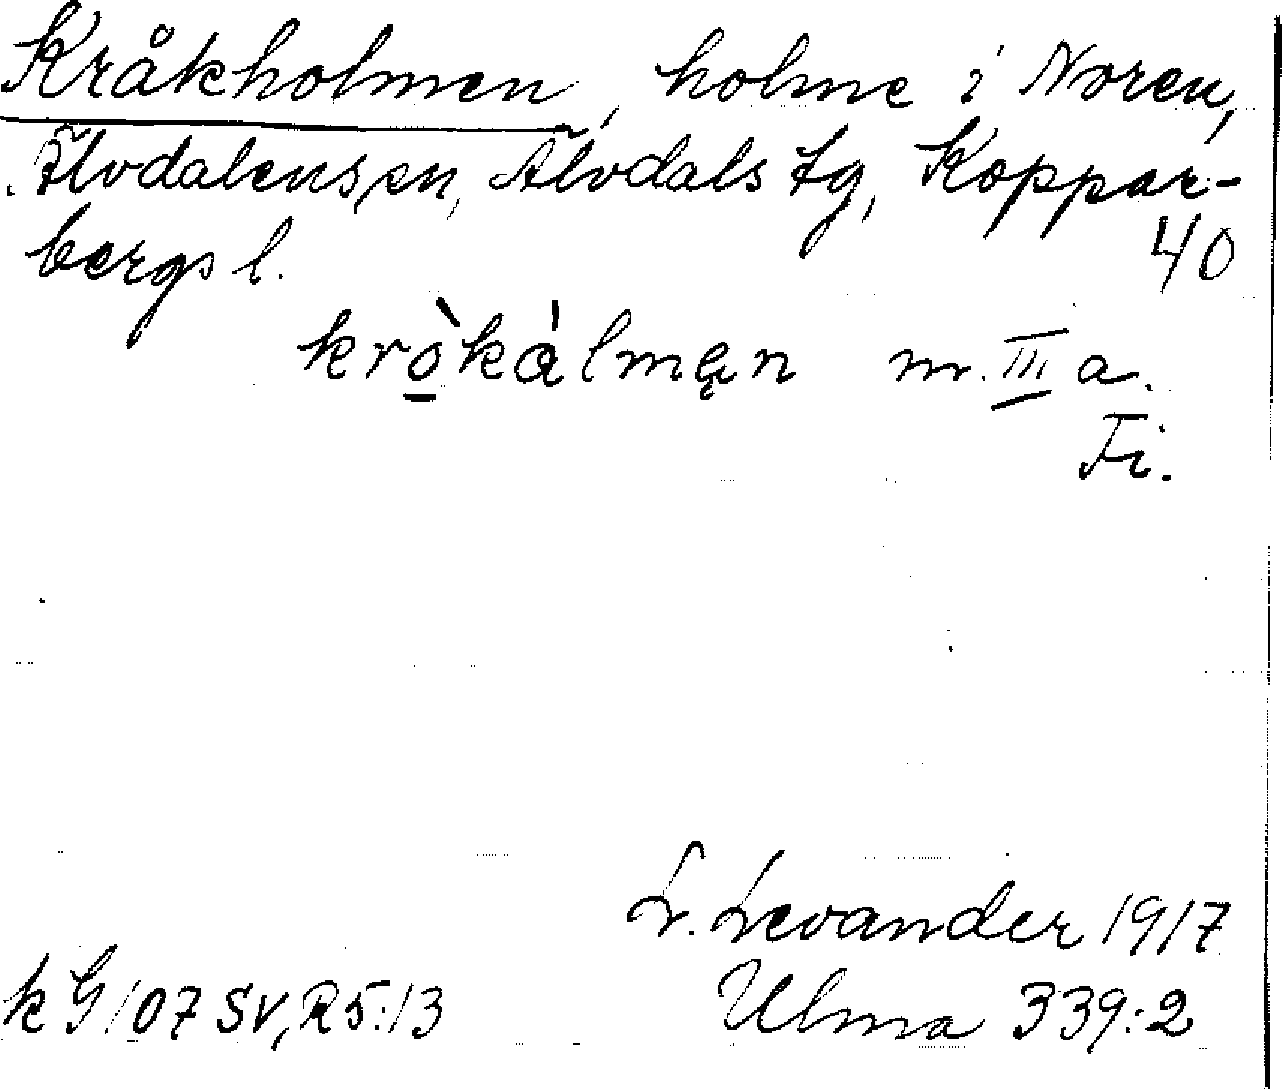 Kråkholmen, holme i Noren,
Älvdalens sn, Älvdals tg, Koppar-
bergs l.
40
kròkàlmęn m. III a.
Fi.
L. Levander 1917
kG 107 SV, R5:13
Ulma 339:2